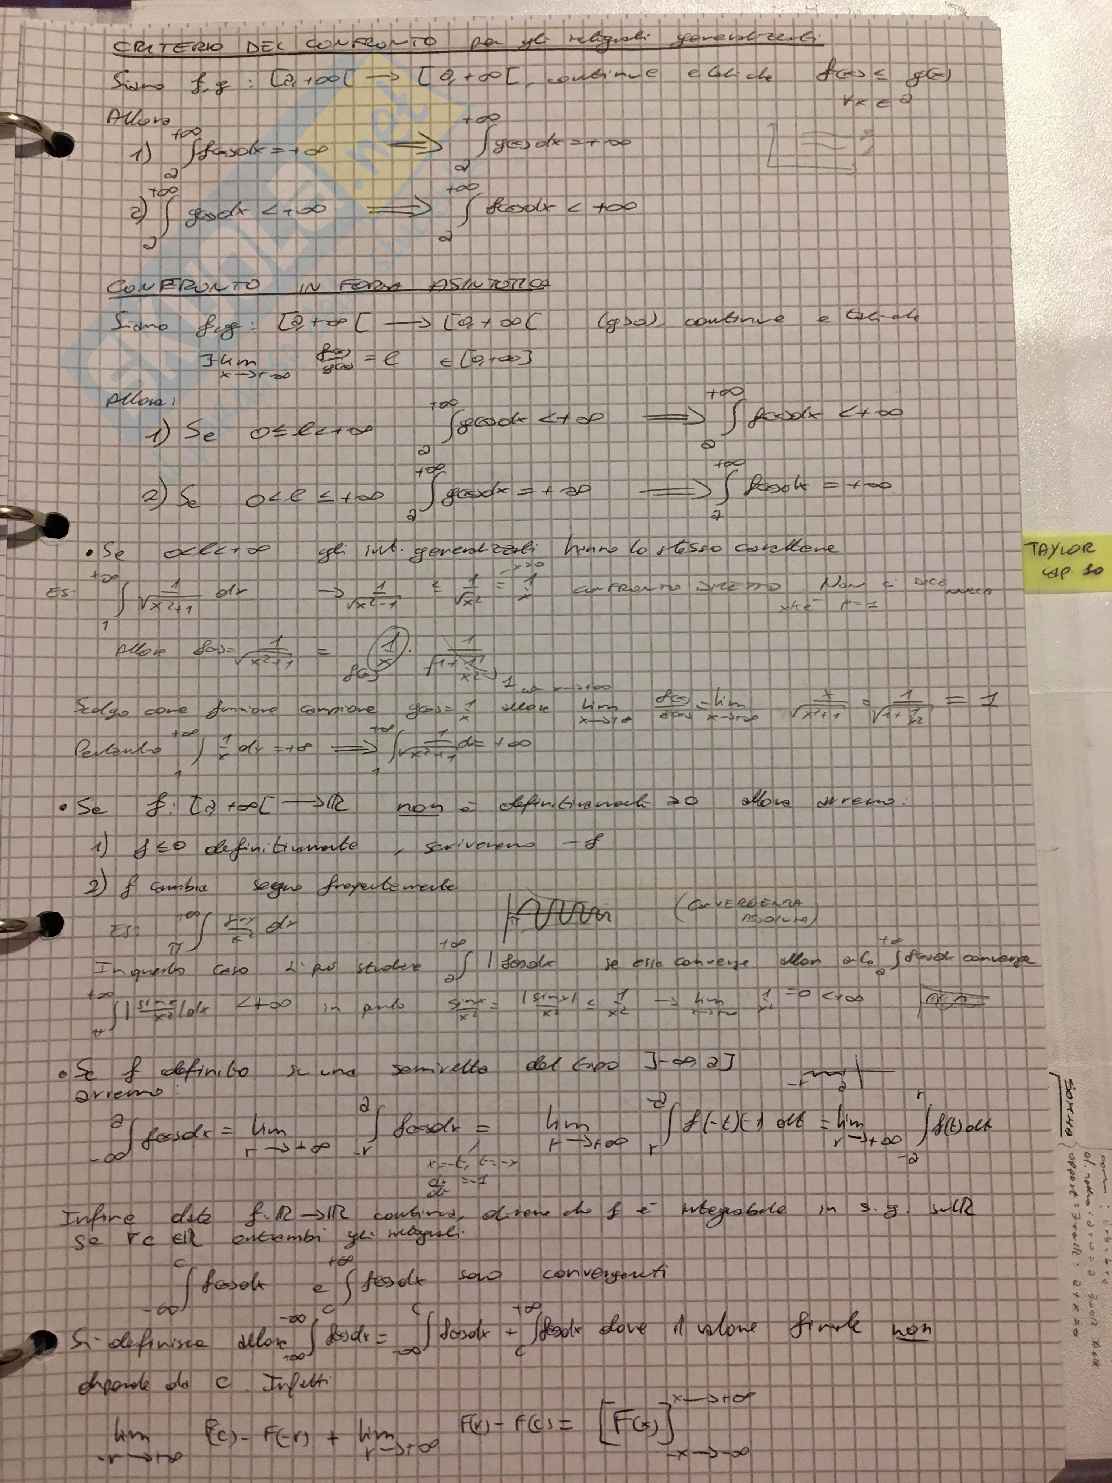 CRITERIO DEL CONFRONTO per gli integrali generalizzati
Siano f,g : [a,+∞[ → [0,+∞[, continue e tali che f(x) ≤ g(x)
∀x ≥ a
Allora
1) ∫_a^{+∞} f(x)dx = +∞ ⟹ ∫_a^{+∞} g(x)dx = +∞
2) ∫_a^{+∞} g(x)dx < +∞ ⟹ ∫_a^{+∞} f(x)dx < +∞
CONFRONTO IN FORMA ASINTOTICA
Siano f,g : [a,+∞[ → [0,+∞[ (g>0) continue e tali che
∃ lim_{x→+∞} f(x)/g(x) = l ∈ [0,+∞]
Allora:
1) Se 0 ≤ l < +∞ ∫_a^{+∞} g(x)dx < +∞ ⟹ ∫_a^{+∞} f(x)dx < +∞
2) Se 0 < l ≤ +∞ ∫_a^{+∞} g(x)dx = +∞ ⟹ ∫_a^{+∞} f(x)dx = +∞
• Se 0<l<+∞ gli int. generalizzati hanno lo stesso carattere
TAYLOR
CAP 10
ES: ∫_1^{+∞} 1/√(x²+1) dx → 1/√(x²+1) ≤ 1/√x² = 1/x CONFRONTO DIRETTO Non ci dice
Allora f(x) = 1/√(x²+1) = 1/x · 1/√(1+1/x²)
1 se x→+∞
Scelgo come funzione campione g(x)=1/x allora lim_{x→+∞} f(x)/g(x) = lim_{x→+∞} x/√(x²+1) = 1/√(1+1/x²) = 1
Pertanto ∫_1^{+∞} 1/x dx = +∞ ⟹ ∫_1^{+∞} 1/√(x²+1) dx = +∞
• Se f: [a,+∞[ → ℝ non è definitivamente ≥0 allora avremo:
1) f ≤ 0 definitivamente, scriveremo -f
2) f cambia segno frequentemente
ES: ∫_π^{+∞} sinx/x² dx (CONVERGENZA
ASSOLUTA)
In questo caso si può studiare ∫_a^{+∞} |f(x)|dx se essa converge allora anche ∫_a^{+∞} f(x)dx converge
∫_π^{+∞} |sinx/x²| dx < +∞ in quanto sinx/x² = |sinx|/x² ≤ 1/x² → lim 1/x² = 0 < +∞
• Se f definita su una semiretta del tipo ]-∞,a]
avremo:
∫_{-∞}^a f(x)dx = lim_{r→+∞} ∫_{-r}^a f(x)dx = lim_{r→+∞} ∫_r^{-a} f(-t)(-1)dt = lim_{r→+∞} ∫_{-a}^r f(t)dt
x=-t, t=-x
= -1
Infine data f: ℝ→ℝ continua, diremo che f è integrabile in s.g. su ℝ
se ∀c ∈ℝ entrambi gli integrali
∫_{-∞}^c f(x)dx e ∫_c^{+∞} f(x)dx sono convergenti
Si definisce allora ∫_{-∞}^{+∞} f(x)dx = ∫_{-∞}^c f(x)dx + ∫_c^{+∞} f(x)dx dove il valore finale non
dipende da c. Infatti
lim_{-r→+∞} F(c) - F(-r) + lim_{r→+∞} F(r) - F(c) = [F(x)]_{-x→-∞}^{x→+∞}
SKUOLA.net